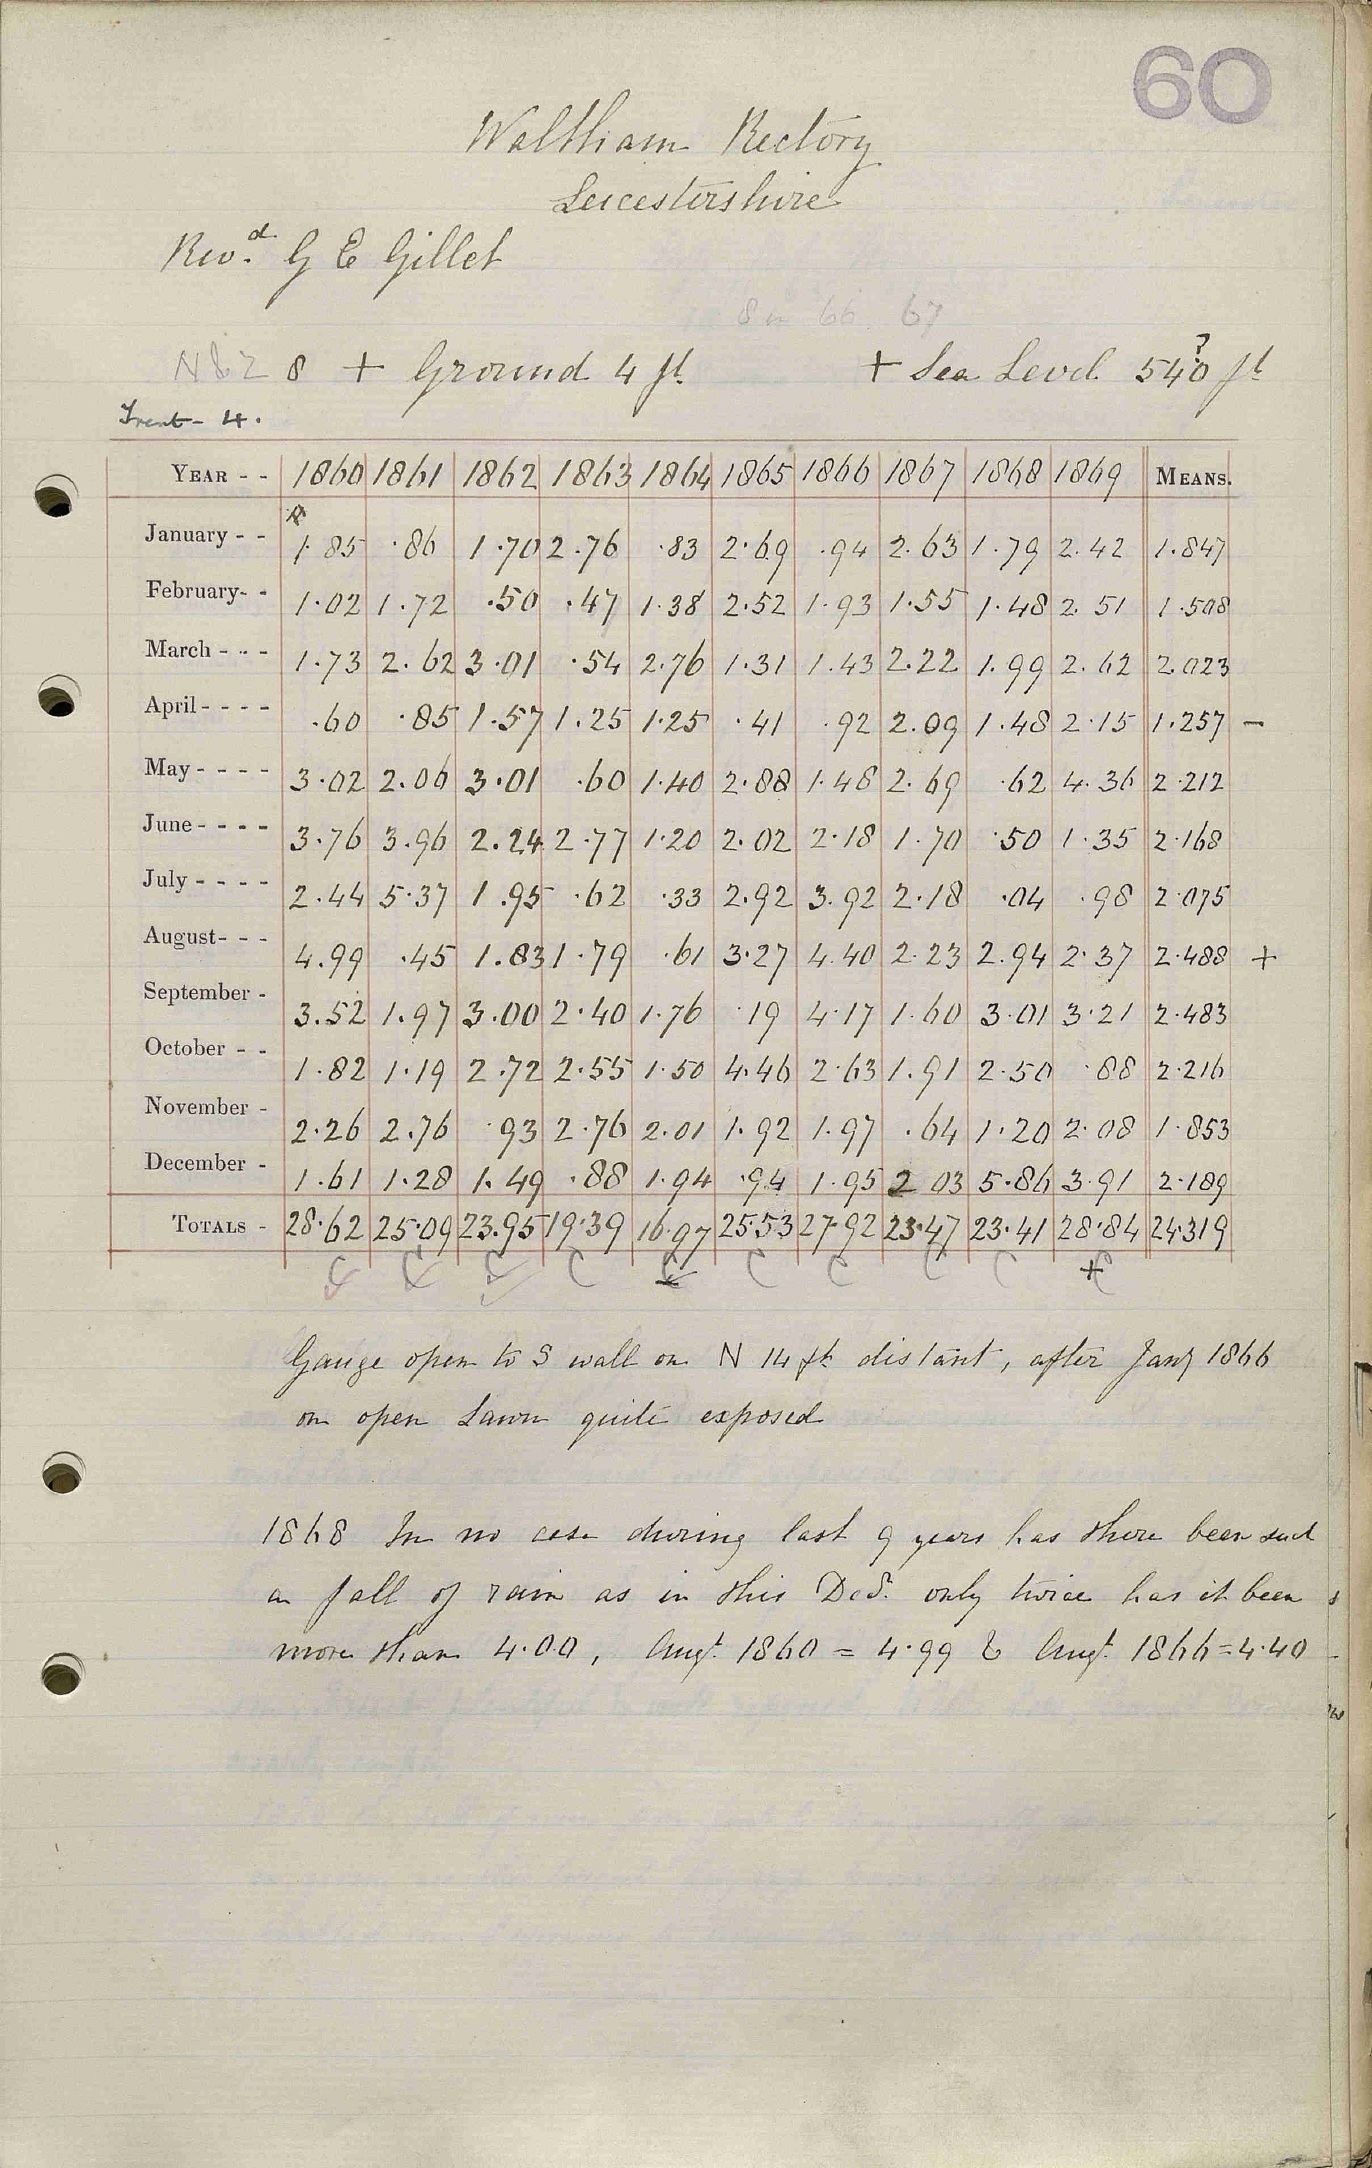 60
Waltham Rectory
Leicestershire
Revd. G E Gillet
8 in 66 67
8 + Ground 4 ft + Sea Level 540? ft
Trent - 4.
YEAR - - 1860 1861 1862 1863 1864 1865 1866 1867 1868 1869 MEANS.
January - - 1.85 .86 1.70 2.76 .83 2.69 .94 2.63 1.79 2.42 1.847
February- - 1.02 1.72 .50 .47 1.38 2.52 1.93 1.55 1.48 2.51 1.508
March - - - 1.73 2.62 3.01 .54 2.76 1.31 1.43 2.22 1.99 2.62 2.023
April - - - - .60 .85 1.57 1.25 1.25 .41 .92 2.09 1.48 2.15 1.257 -
May - - - - 3.02 2.06 3.01 .60 1.40 2.88 1.48 2.69 .62 4.36 2.212
June - - - - 3.76 3.96 2.24 2.77 1.20 2.02 2.18 1.70 .50 1.35 2.168
July - - - - 2.44 5.37 1.95 .62 .33 2.92 3.92 2.18 .04 .98 2.075
August- - - 4.99 .45 1.83 1.79 .61 3.27 4.40 2.23 2.94 2.37 2.488 +
September - 3.52 1.97 3.00 2.40 1.76 .19 4.17 1.60 3.01 3.21 2.483
October - - 1.82 1.19 2.72 2.55 1.50 4.46 2.63 1.91 2.50 .88 2.216
November - 2.26 2.76 .93 2.76 2.01 1.92 1.97 .64 1.20 2.08 1.853
December - 1.61 1.28 1.49 .88 1.94 .94 1.95 2 03 5.86 3.91 2.189
TOTALS - 28.62 25.09 23.95 19.39 16.97 25.53 27.92 23.47 23.41 28.84 24.319
Gauge open to S wall on N 14 ft distant, after Jany 1866
on open Lawn quite exposed
1868 In no case during last 9 years has there been such
a fall of rain as in this Dec. only twice has it been
more than 4.00, Augt. 1860 = 4.99 & Augt. 1866 = 4.40